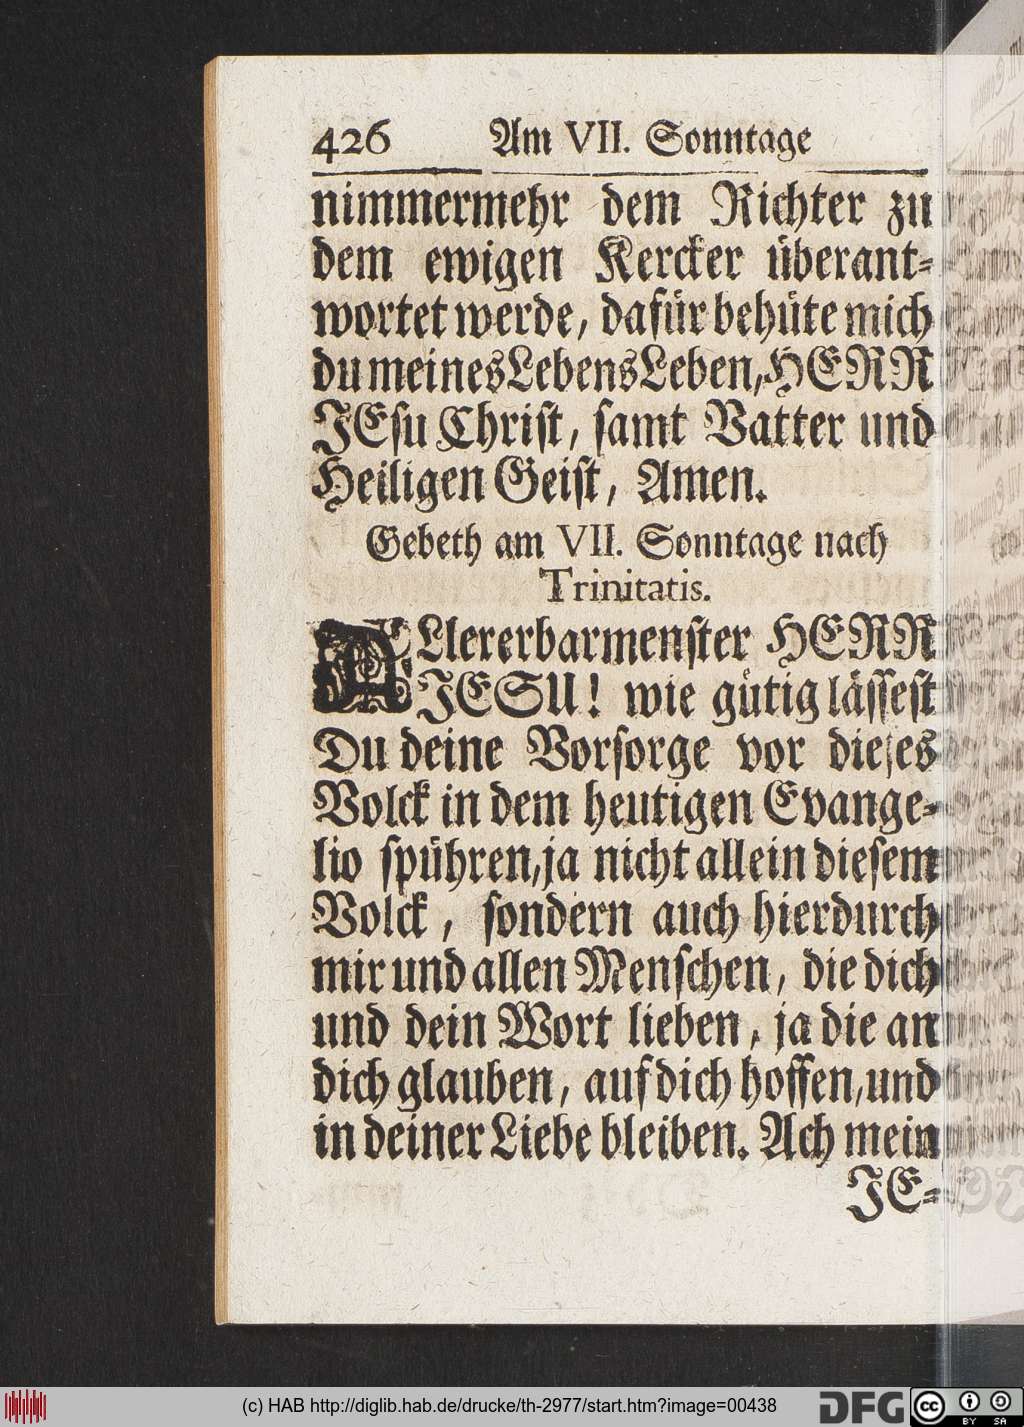 426 Am VII. Sonntage
nimmermehr dem Richter zu
dem ewigen Kercker überant-
wortet werde, dafür behüte mich
du meines Lebens Leben, HERR
JEsu Christ, samt Vatter und
Heiligen Geist, Amen.
Gebeth am VII. Sonntage nach
Trinitatis.
ALlererbarmenster HERR
JESU! wie gütig lässest
Du deine Vorsorge vor dieses
Volck in dem heutigen Evange-
lio spühren, ja nicht allein diesem
Volck, sondern auch hierdurch
mir und allen Menschen, die dich
und dein Wort lieben, ja die an
dich glauben, auf dich hoffen, und
in deiner Liebe bleiben. Ach mein
JE-
(c) HAB http://diglib.hab.de/drucke/th-2977/start.htm?image=00438
DFG cc BY SA